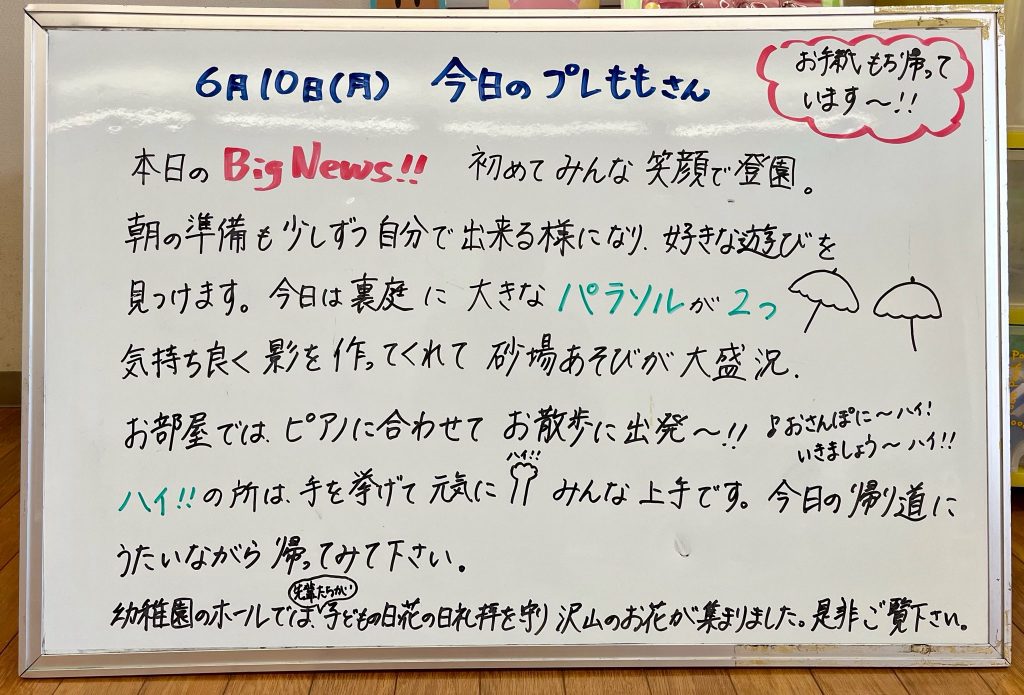 6月10日(月) 今日のプレももさん
お手紙もち帰って
います〜!!
本日の Big News!! 初めてみんな笑顔で登園。
朝の準備も少しずつ自分で出来る様になり、好きな遊びを
見つけます。今日は裏庭に大きなパラソルが2つ
気持ち良く影を作ってくれて砂場あそびが大盛況.
お部屋では、ピアノに合わせてお散歩に出発〜!!
♪おさんぽに〜ハイ!
いきましょう〜ハイ!!
ハイ!!
ハイ!!の所は、手を挙げて元気に みんな上手です。今日の帰り道に
うたいながら帰ってみて下さい。
先輩たちが
幼稚園のホールでは、子どもの日花の日礼拝を守り沢山のお花が集まりました。是非ご覧下さい。